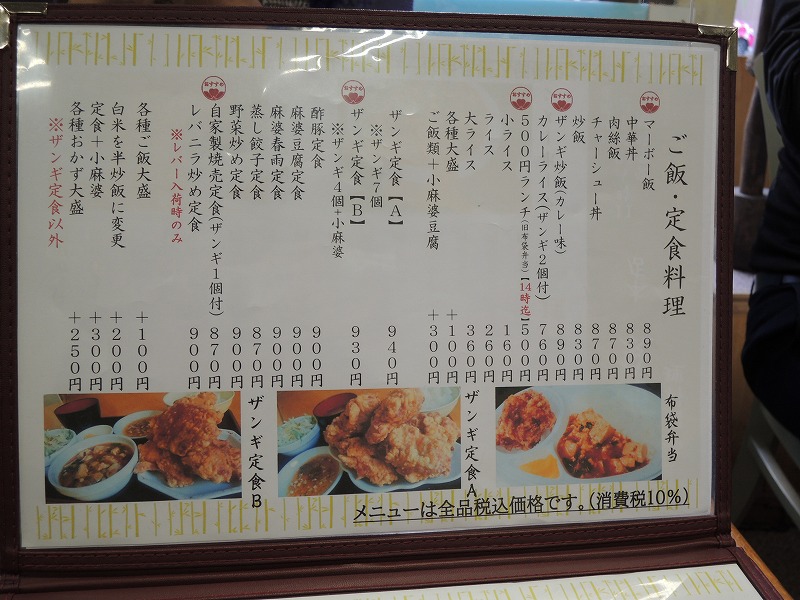 ご飯・定食料理
おすすめ
マーボー飯 890円
中華丼 830円
肉絲飯 870円
チャーシュー丼 870円
炒飯 830円
おすすめ
ザンギ炒飯(カレー味) 890円
カレーライス(ザンギ2個付) 760円
おすすめ
500円ランチ(旧布袋弁当)【14時迄】500円
小ライス 160円
ライス 260円
大ライス 360円
各種大盛 +100円
ご飯類+小麻婆豆腐 +300円
ザンギ定食【A】 940円
※ザンギ7個
おすすめ
ザンギ定食【B】 930円
※ザンギ4個+小麻婆
酢豚定食 900円
麻婆豆腐定食 900円
麻婆春雨定食 900円
蒸し餃子定食 870円
野菜炒め定食 900円
おすすめ
自家製焼売定食(ザンギ1個付) 870円
レバニラ炒め定食 900円
※レバー入荷時のみ
各種ご飯大盛 +100円
白米を半炒飯に変更 +200円
定食+小麻婆 +300円
各種おかず大盛 +250円
※ザンギ定食以外
布袋弁当
ザンギ定食A
ザンギ定食B
メニューは全品税込価格です。(消費税10%)